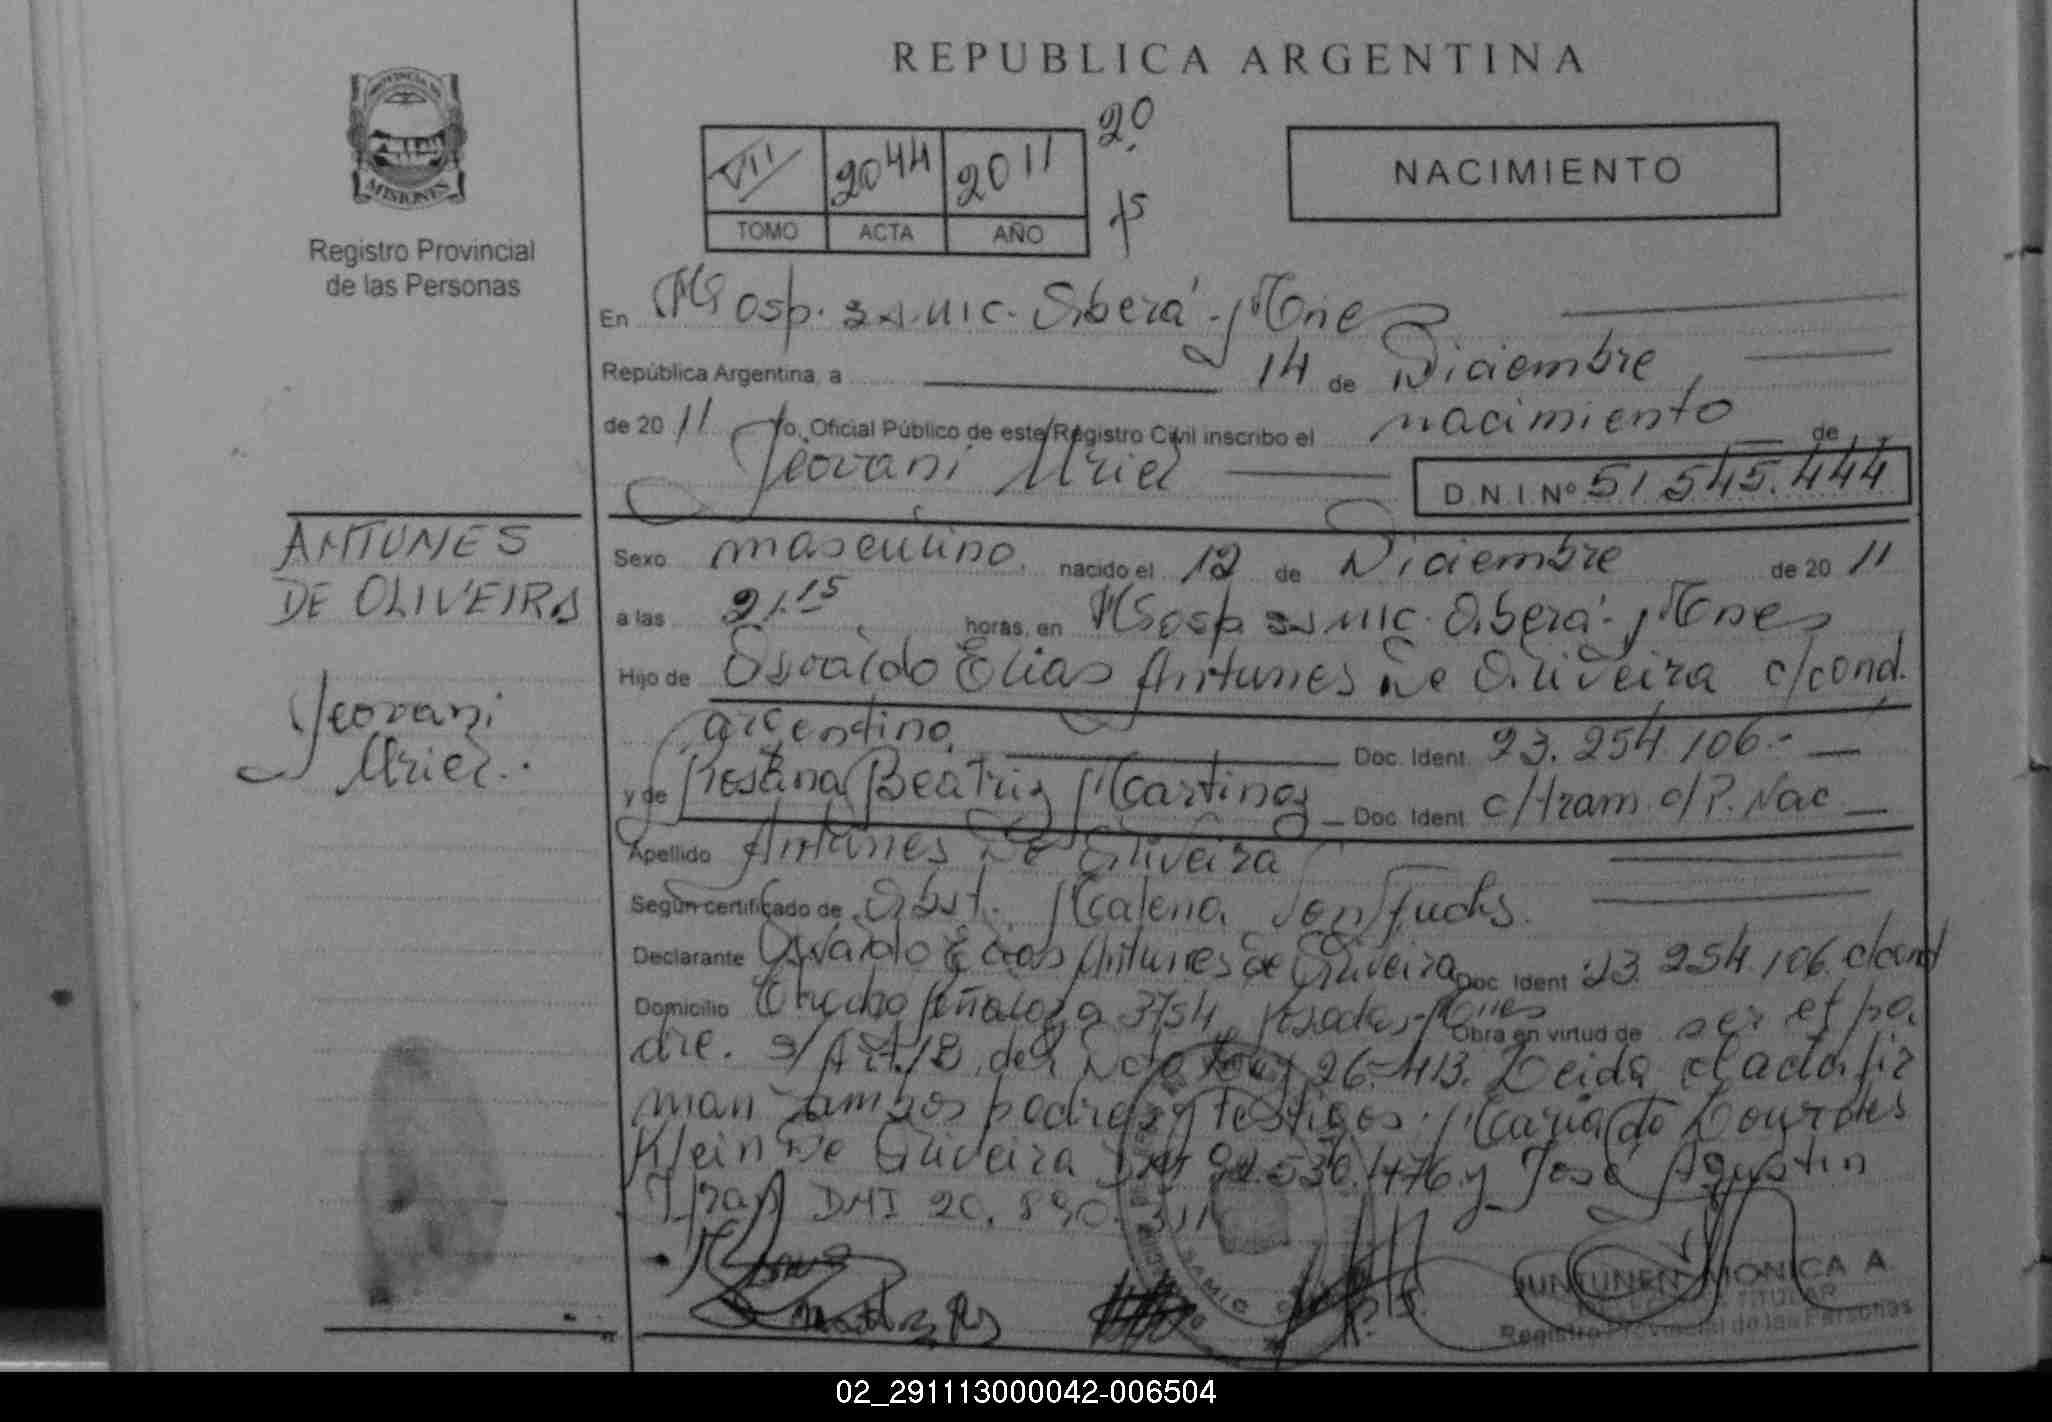 REPUBLICA ARGENTINA
PROVINCIA DE
MISIONES
Registro Provincial
de las Personas
VII 2044 2011
TOMO ACTA AÑO
20
15
NACIMIENTO
En Hosp. Oberá - Mnes
República Argentina, a 14 de Diciembre
de 20 11 Yo, Oficial Público de este Registro Civil inscribo el nacimiento de
Jeovani Uriel D.N.I. Nº 51.545.444
ANTUNES
DE OLIVEIRA
Jeovani
Uriel.
Sexo masculino, nacido el 12 de Diciembre de 20 11
a las 21.15 horas, en Hosp. Oberá - Mnes
Hijo de Osvaldo Elias Antunes De Oliveira c/cond.
argentino, Doc. Ident. 23.254.106.-
y de Rosana Beatriz Martinez Doc. Ident. c/tram. d/P. Nac.
Apellido Antunes De Oliveira
Según certificado de Obst. Malena Fuchs.
Declarante Osvaldo Elias Antunes de Oliveira Doc. Ident 23.254.106 c/cond
Domicilio Chacho Peñaloza 3754 Posadas-Mnes Obra en virtud de ser el pa
dre. s/Art. 12 del 26.413. Leida el acta fir
man ambos padres y testigos: Maria de Lourdes
Klein De Oliveira 530.476 y José Agustin
DNI 20.890.311
JUNTUNEN MONICA A
TITULAR
Registro Provincial de las Personas
02_291113000042-006504